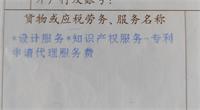 货物或应税劳务、服务名称
*设计服务*知识产权服务-专利
申请代理服务费